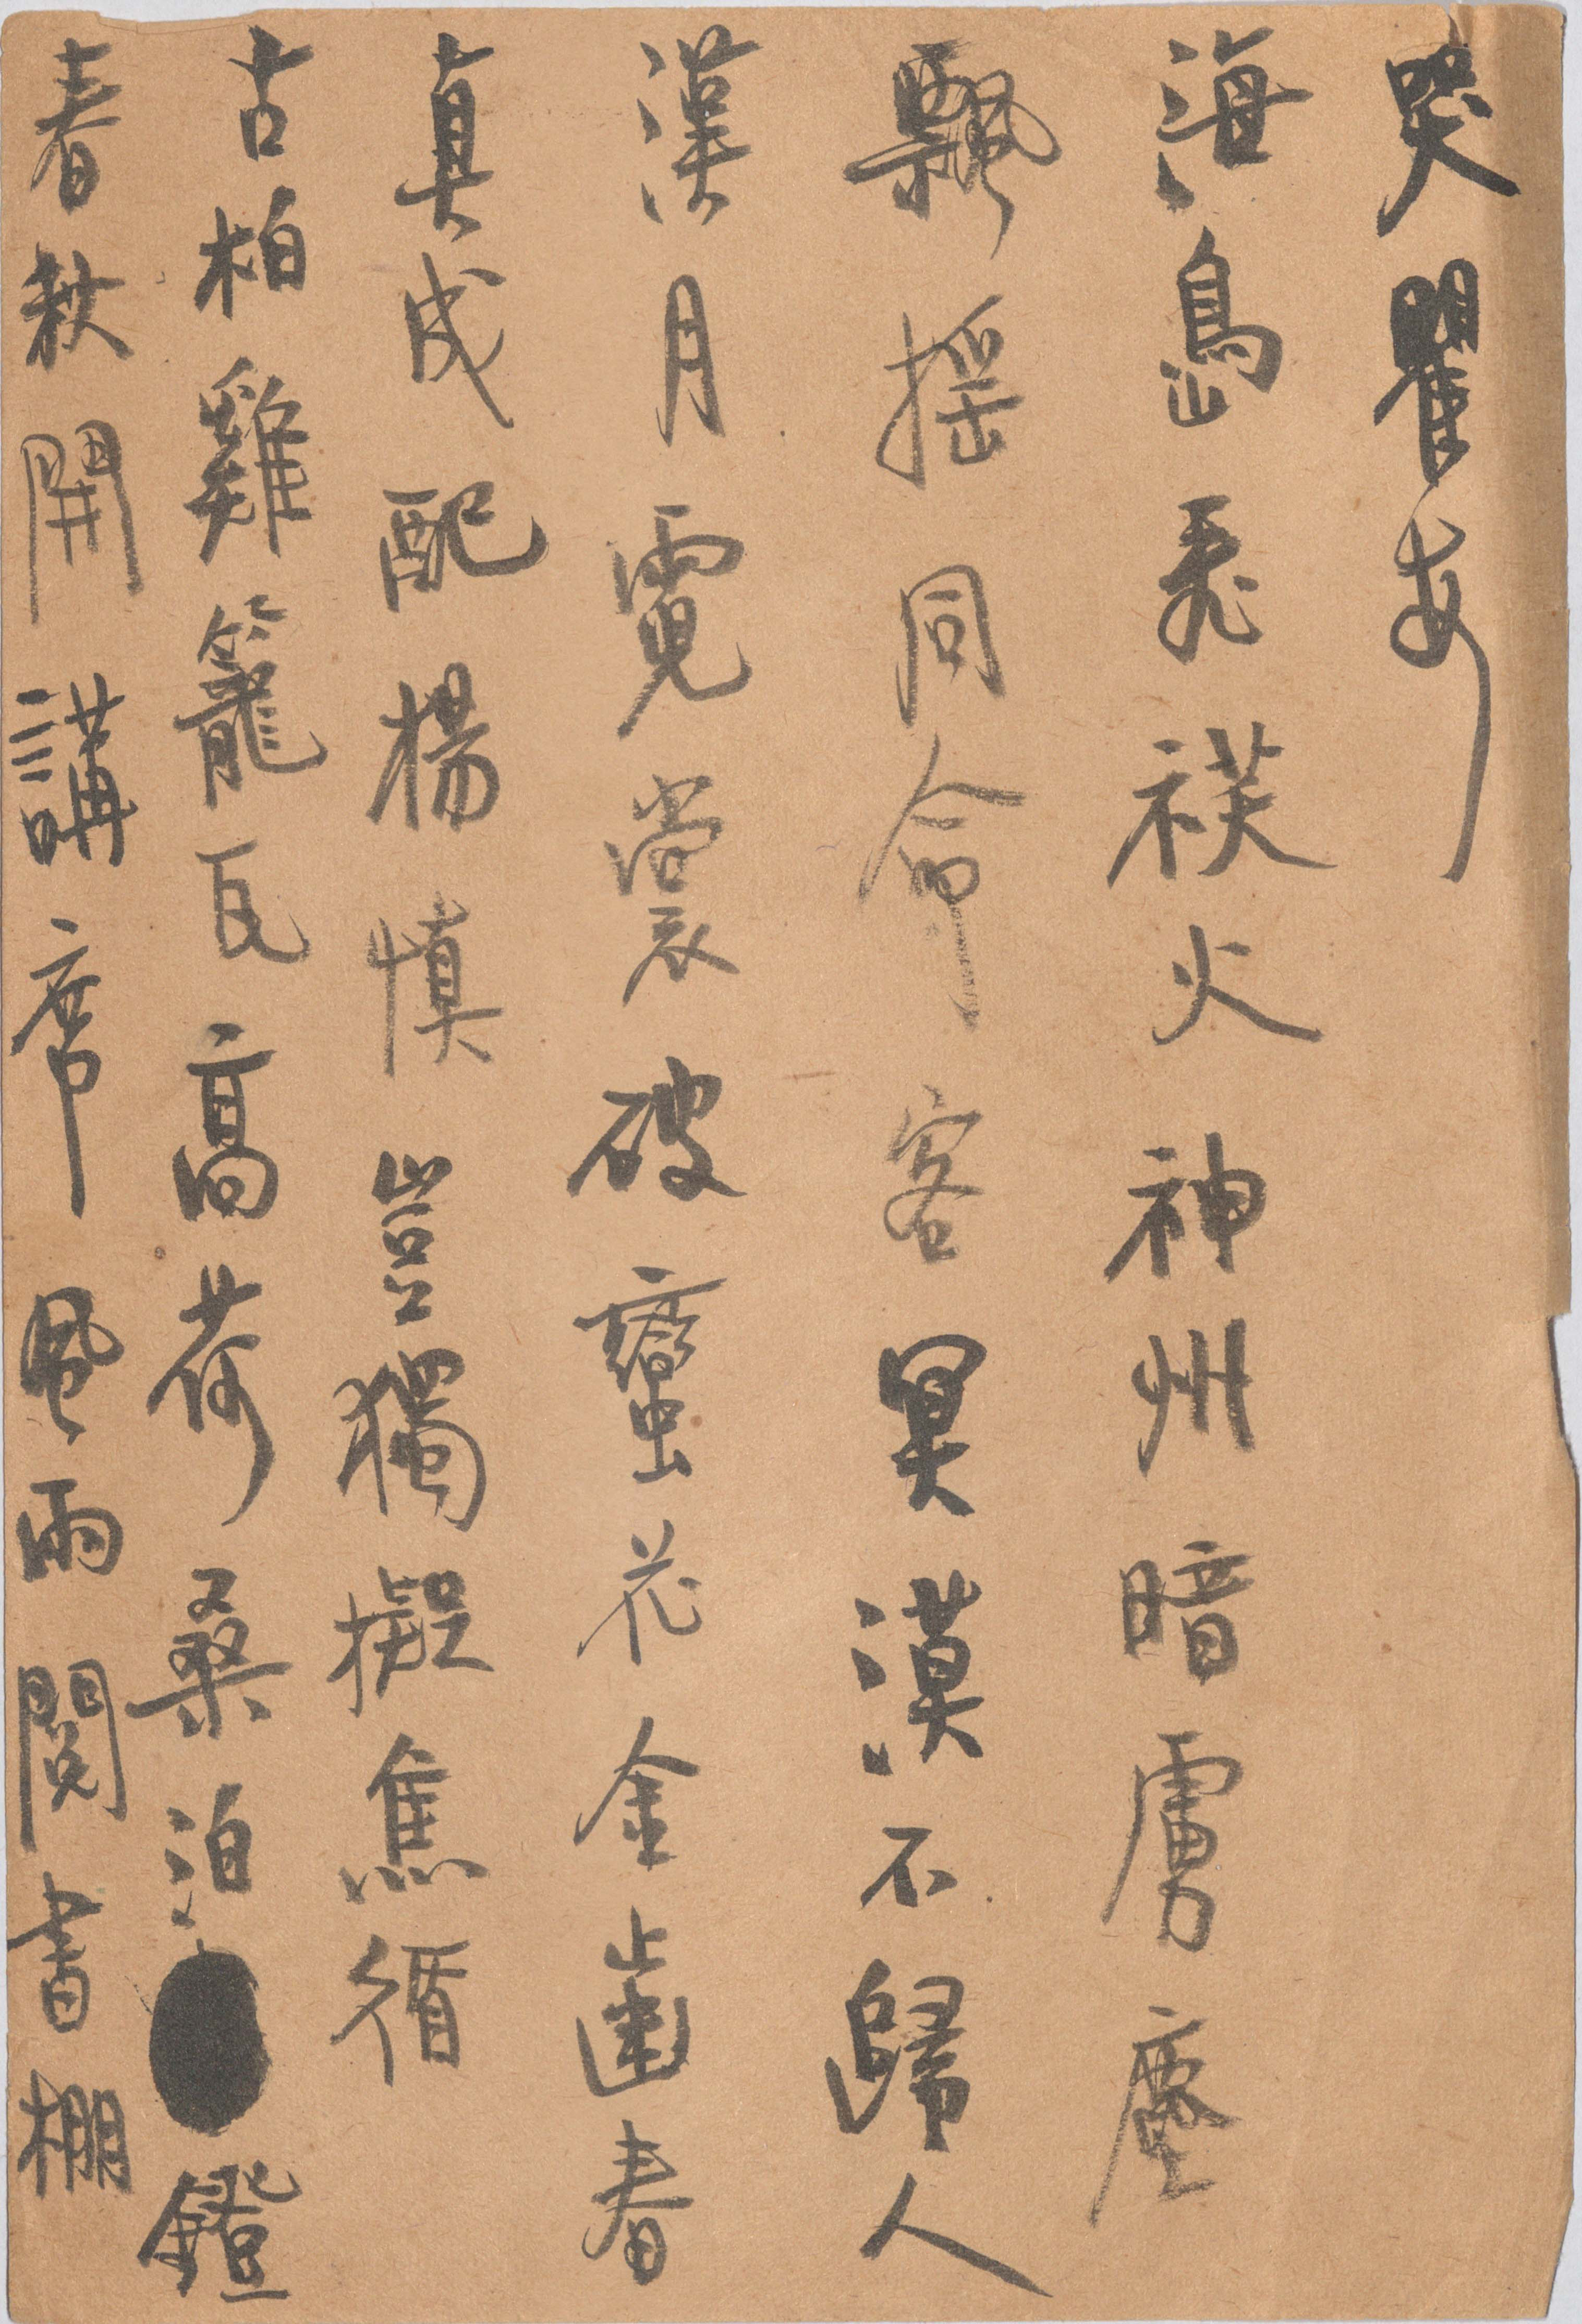 哭瞿安
海島飛火神州暗虜塵
飄搖同命客冥漠不歸人
漢月霓裳破蠻花金齒春
真成配楊慎豈獨擬焦循
古柏雞籠瓦高荷桑泊鐙
春秋開講席風雨閱書棚